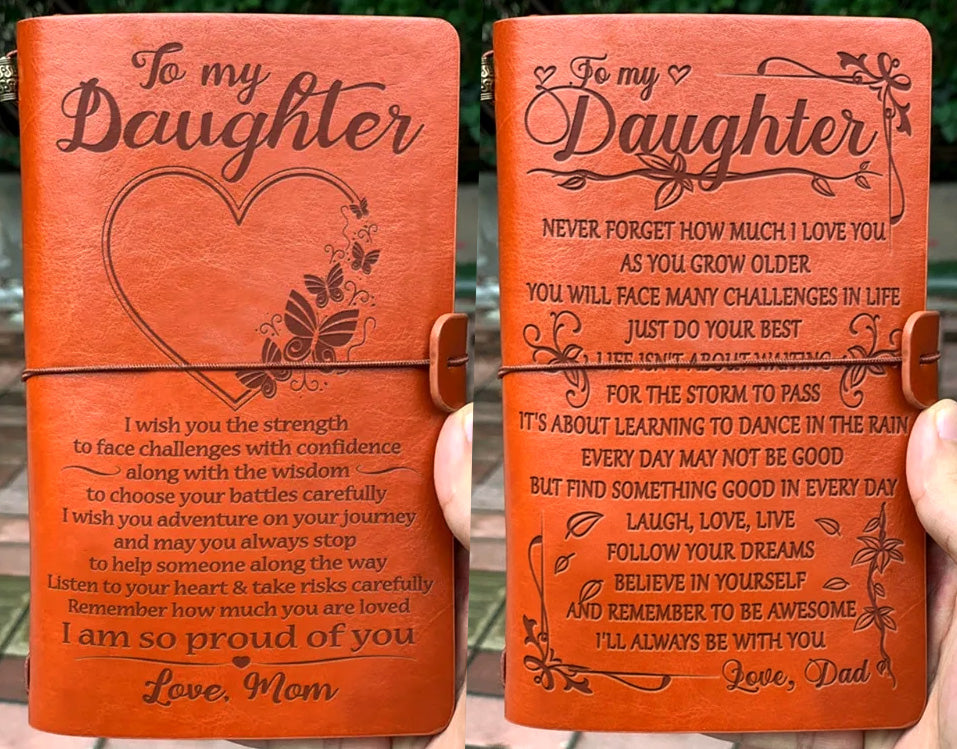 To my
Daughter
I wish you the strength
to face challenges with confidence
along with the wisdom
to choose your battles carefully
I wish you adventure on your journey
and may you always stop
to help someone along the way
Listen to your heart & take risks carefully
Remember how much you are loved
I am so proud of you
Love, Mom
To my
Daughter
NEVER FORGET HOW MUCH I LOVE YOU
AS YOU GROW OLDER
YOU WILL FACE MANY CHALLENGES IN LIFE
JUST DO YOUR BEST
LIFE ISN'T ABOUT WAITING
FOR THE STORM TO PASS
IT'S ABOUT LEARNING TO DANCE IN THE RAIN
EVERY DAY MAY NOT BE GOOD
BUT FIND SOMETHING GOOD IN EVERY DAY
LAUGH, LOVE, LIVE
FOLLOW YOUR DREAMS
BELIEVE IN YOURSELF
AND REMEMBER TO BE AWESOME
I'LL ALWAYS BE WITH YOU
Love, Dad